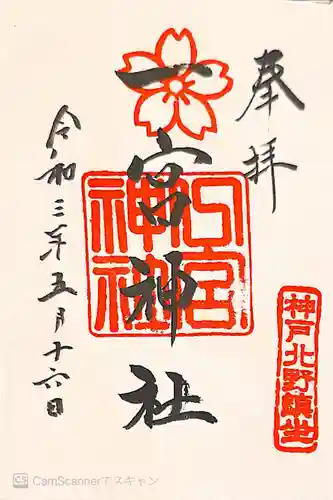 奉拝
一宮神社
一宮神社
神戸北野鎮坐
令和三年五月十六日
CS CamScannerでスキャン